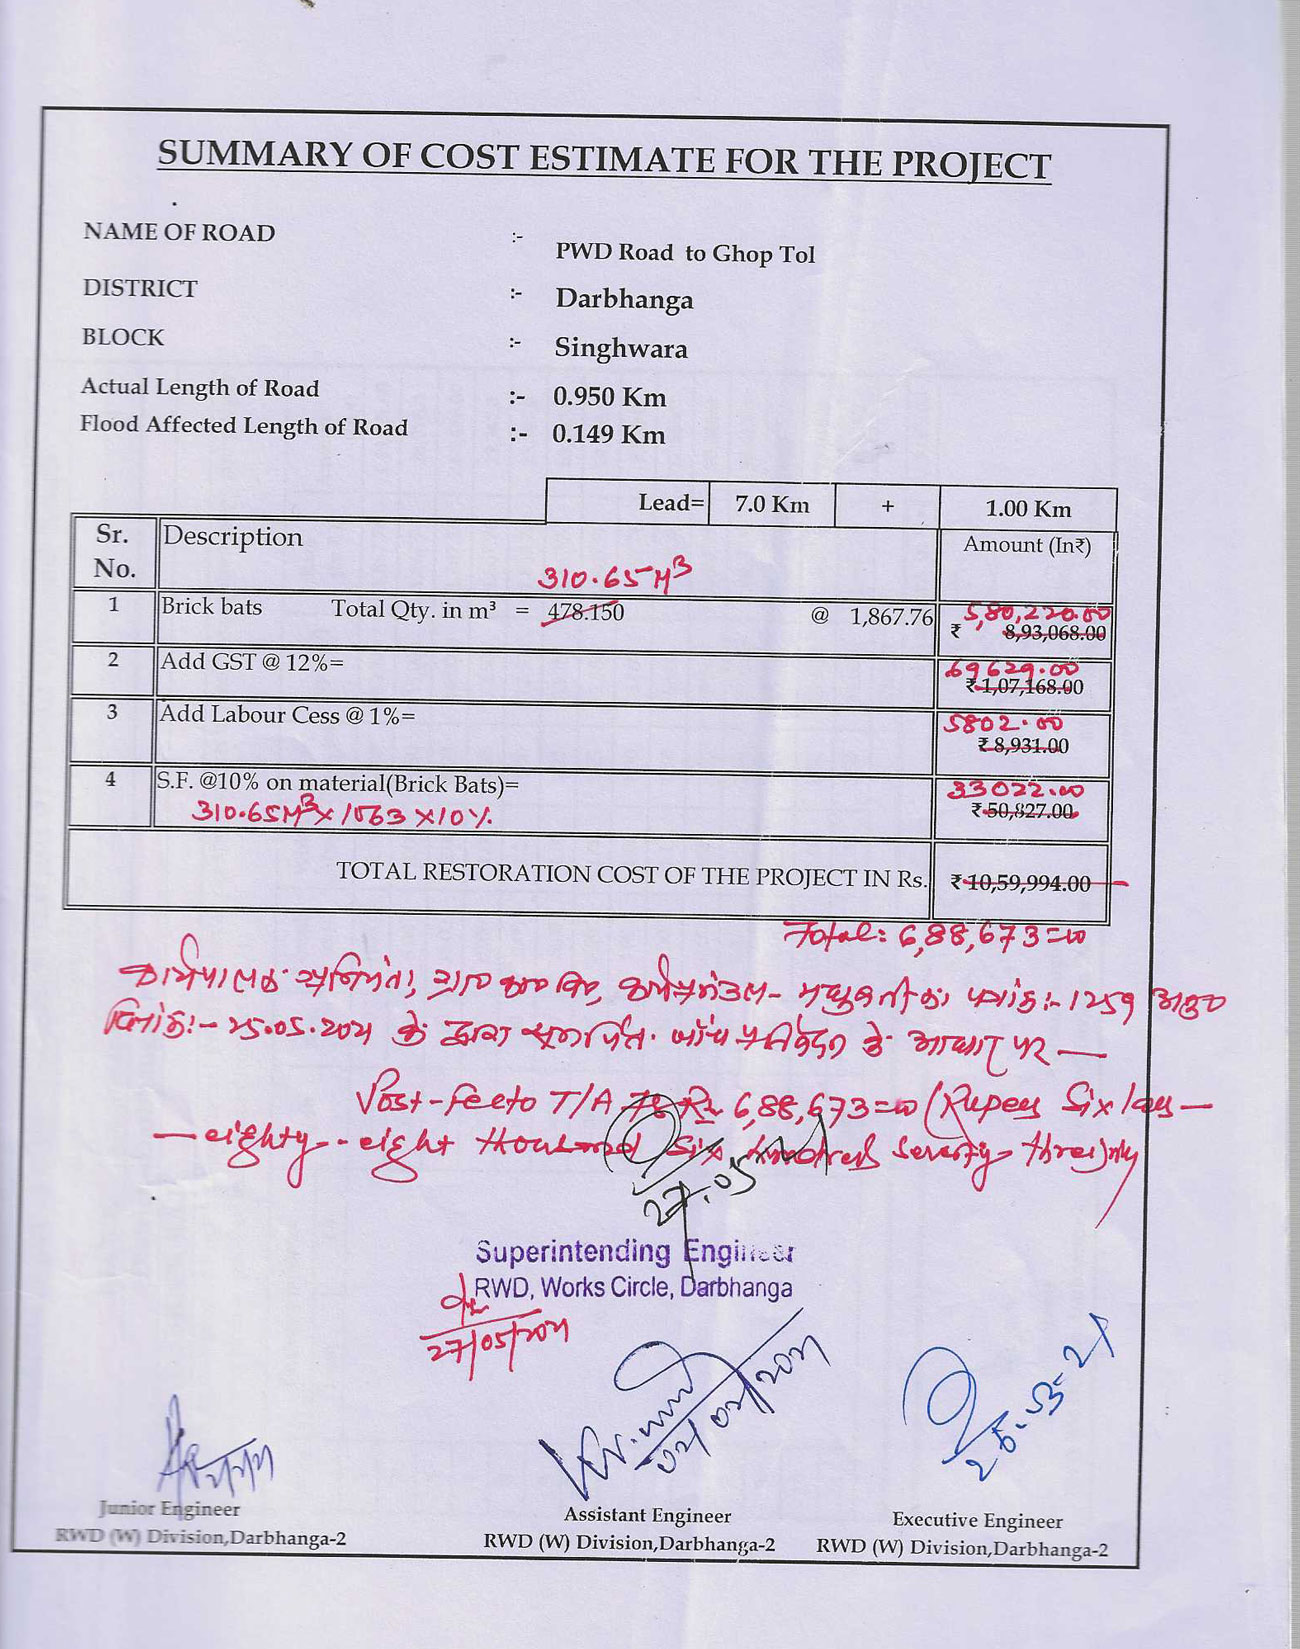 SUMMARY OF COST ESTIMATE FOR THE PROJECT
NAME OF ROAD :- PWD Road to Ghop Tol
DISTRICT :- Darbhanga
BLOCK :- Singhwara
Actual Length of Road :- 0.950 Km
Flood Affected Length of Road :- 0.149 Km
Lead= 7.0 Km + 1.00 Km
Sr. No. Description Amount (In₹)
310.65 M³
1 Brick bats Total Qty. in m³ = 478.150 @ 1,867.76 5,80,220.00
₹ 8,93,068.00
2 Add GST @ 12%= 69629.00
₹ 1,07,168.00
3 Add Labour Cess @ 1%= 5802.00
₹ 8,931.00
4 S.F. @10% on material(Brick Bats)= 33022.00
310.65M³ x 1063 x10% ₹ 50,827.00
TOTAL RESTORATION COST OF THE PROJECT IN Rs. ₹ 10,59,994.00
Total: 6,88,673=00
कार्यपालक अभियंता, कार्य प्रमंडल- पत्रांक:- 1259
दिनांक:- 25.05.2021 के द्वारा समर्पित जाँच प्रतिवेदन के आधार पर —
Post-facto T/A Rs 6,88,673=00 (Rupees Six lacs —
— eighty-eight thousand Six hundred seventy three) only
27.05
Superintending Engineer
RWD, Works Circle, Darbhanga
27/05/2021
02/02/2021
26-03-21
Junior Engineer
RWD (W) Division,Darbhanga-2
Assistant Engineer
RWD (W) Division,Darbhanga-2
Executive Engineer
RWD (W) Division,Darbhanga-2